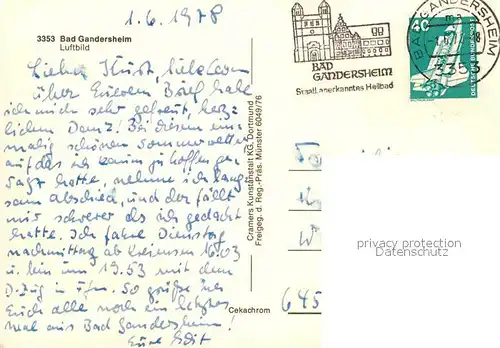 1.6.1978
3353 Bad Gandersheim
Luftbild
Lieber Kurt, liebe
über Eueren Brief habe
ich mich sehr gefreut, herz-
lichen Dank! Bei diesem ein-
malig schönen Sommerwetter
auf das ich kaum zu hoffen ge-
wagt hatte, nehme ich lang-
sam Abschied, und der fällt
mir schwerer als ich gedacht
hatte. Ich fahre Dienstag
nachmittag ab Kreiensen 16.03
u. bin um 19.53 mit dem
D-Zug in Ffm. So grüße ich
Euch alle noch ein letztes
mal aus Bad Gandersheim!
Eure Edit
Cramers Kunstanstalt KG, Dortmund
Freigeg. d. Reg.-Präs. Münster 6049/76
Cekachrom
BAD
GANDERSHEIM
Staatl. anerkanntes Heilbad
BAD GANDERSHEIM
3353
DEUTSCHE BUNDESPOST
645
privacy protection
Datenschutz